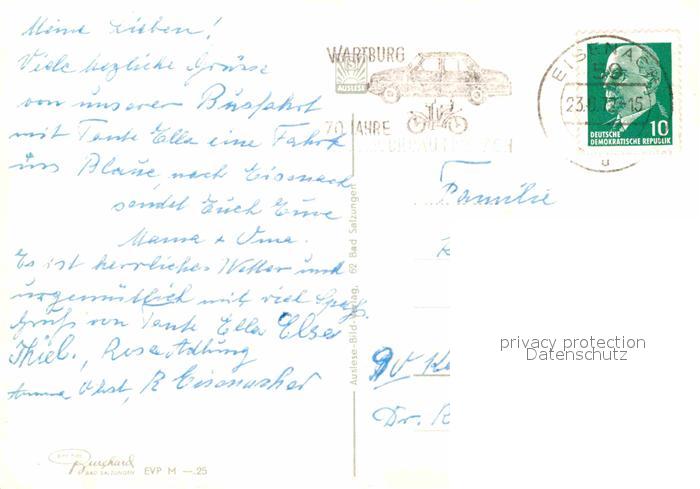 Meine Lieben!
Viele herzliche Grüsse
von unserer Busfahrt
mit Tante Ella eine Fahrt
ins Blaue nach Eisenach
sendet Euch Eure
Mama + Oma.
Es ist herrliches Wetter und
urgemütlich mit viel Spaß.
Gruß von Tante Ella Elsa
Thiel., Rosa
R
Burghard
BAD SALZUNGEN
EVP M —.25
Auslese-Bild-Verlag, 62 Bad Salzungen
WARTBURG
AUSLESE
70 JAHRE
EISENACH
59
23.6.
-15
u
10
DEUTSCHE
DEMOKRATISCHE REPUBLIK
Familie
privacy protection
Datenschutz
Dr. R